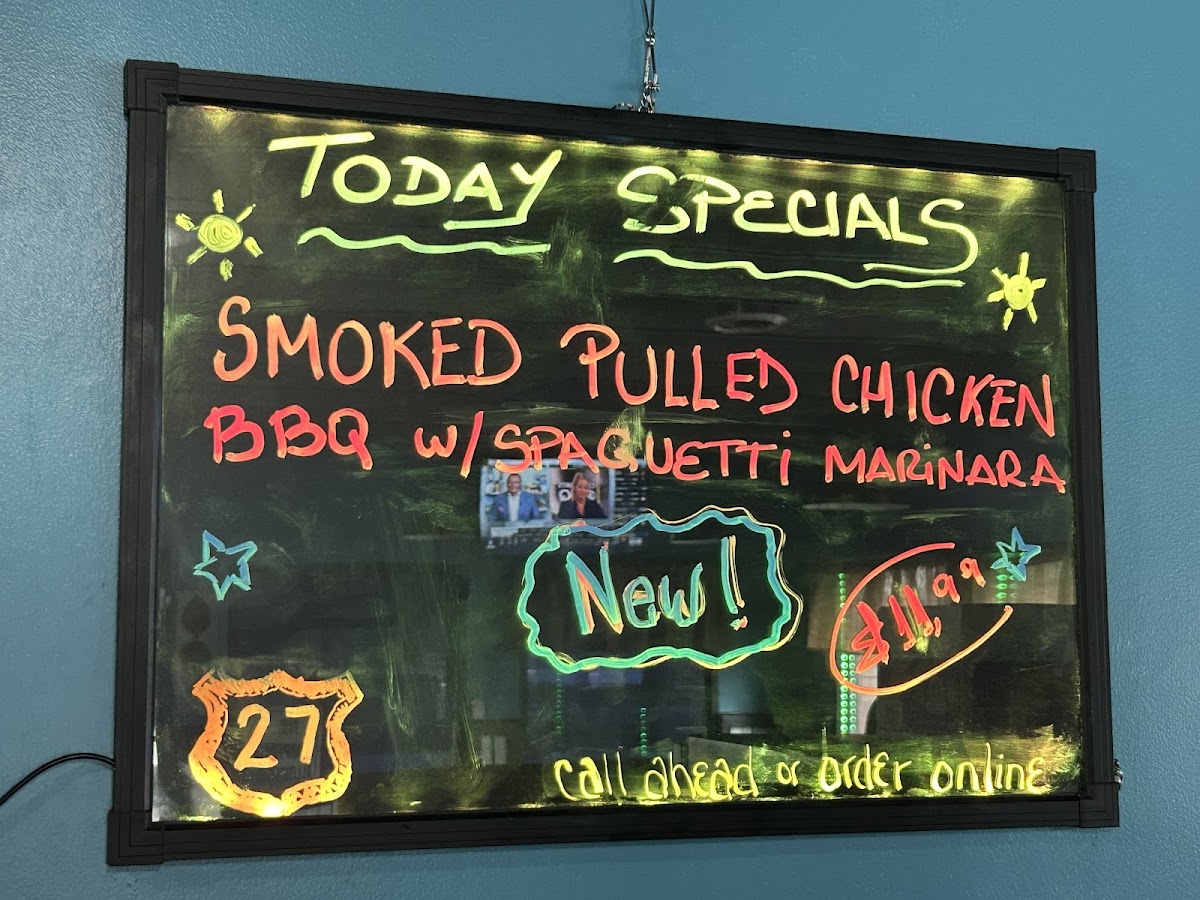 TODAY SPECIALS
SMOKED PULLED CHICKEN
BBQ W/SPAGUETTi MARiNARA
New!
$11,99
27
call ahead or order online